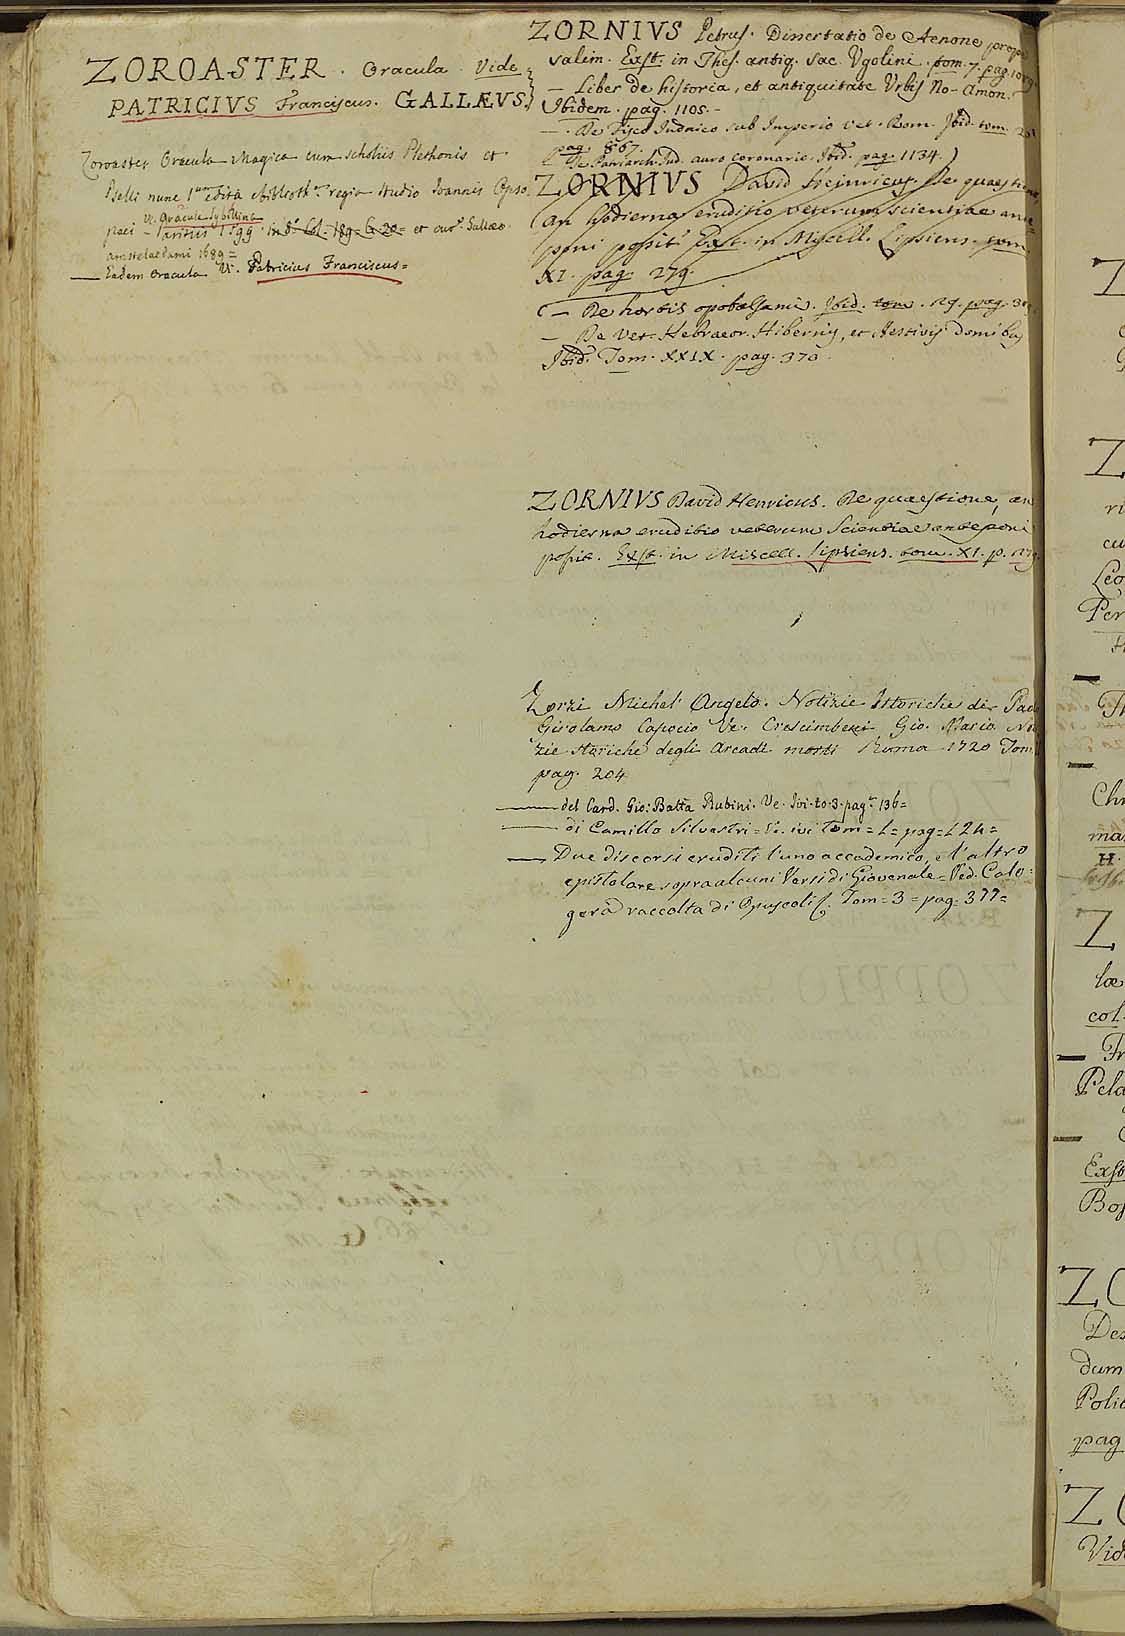 ZOROASTER. Oracula. Vide
PATRICIVS Franciscus. GALLÆVS.
Zoroaster Oracula Magica cum scholiis Plethonis et
Pselli nunc 1um edita e Biblioth. regia studio Ioannis Opso
V. Oracula Sybillina
paei - Parisiis 1599. in 8° Col. 189. G. 20 = et cur. Gallaeo
Amstelaedami 1689 =
— Eadem Oracula V. Patricius Franciscus =
ZORNIVS Petrus. Dissertatio de Aenone prope
salim. Exst. in Thes. antiq. Sac. Ugolini. tom. 7. pag.
— Liber de historia, et antiquitate Urbis No-Amon.
Ibidem. pag. 1105. -
— De Fisco Iudaico sub Imperio vet. Rom. Ibid. tom.
pag. 867.
De Patriarch. Iud. auro coronario. Ibid. pag. 1134.
ZORNIVS David Heinricus. De quaestione,
an hodierna eruditio veterum scientiae ante=
poni possit. Exst. in Miscell. Lipsiens. tom
XI. pag. 279.
— De hortis opobalsami. Ibid. tom. 29. pag.
— De Vet. Hebraeor. Hibernis, et Aestivis domibus
Ibid. Tom. XXIX. pag. 370.
ZORNIVS David Henricus. De quaestione, an
hodierna eruditio veterum Scientiae anteponi
possit. Exst. in Miscell. Lipsiens. tom. XI. p. 279
Zorzi Michel' Angelo. Notizie Istoriche di Pado
Girolamo Capocio Ve. Crescimbeni Gio. Mario. No
zie storiche degli Arcadi morti Roma 1720 Tom.
pag. 204
— del Card. Gio: Batta Rubini. Ve. Ivi. to. 3. pag. 136 =
— di Camillo Silvestri = V. ivi Tom = 1 = pag = 124 =
— Due discorsi eruditi l'uno accademico, e l'altro
epistolare sopra alcuni Versi di Giovenale = Ved. Calo=
gerà raccolta di Opuscoli. Tom = 3 = pag = 377 =